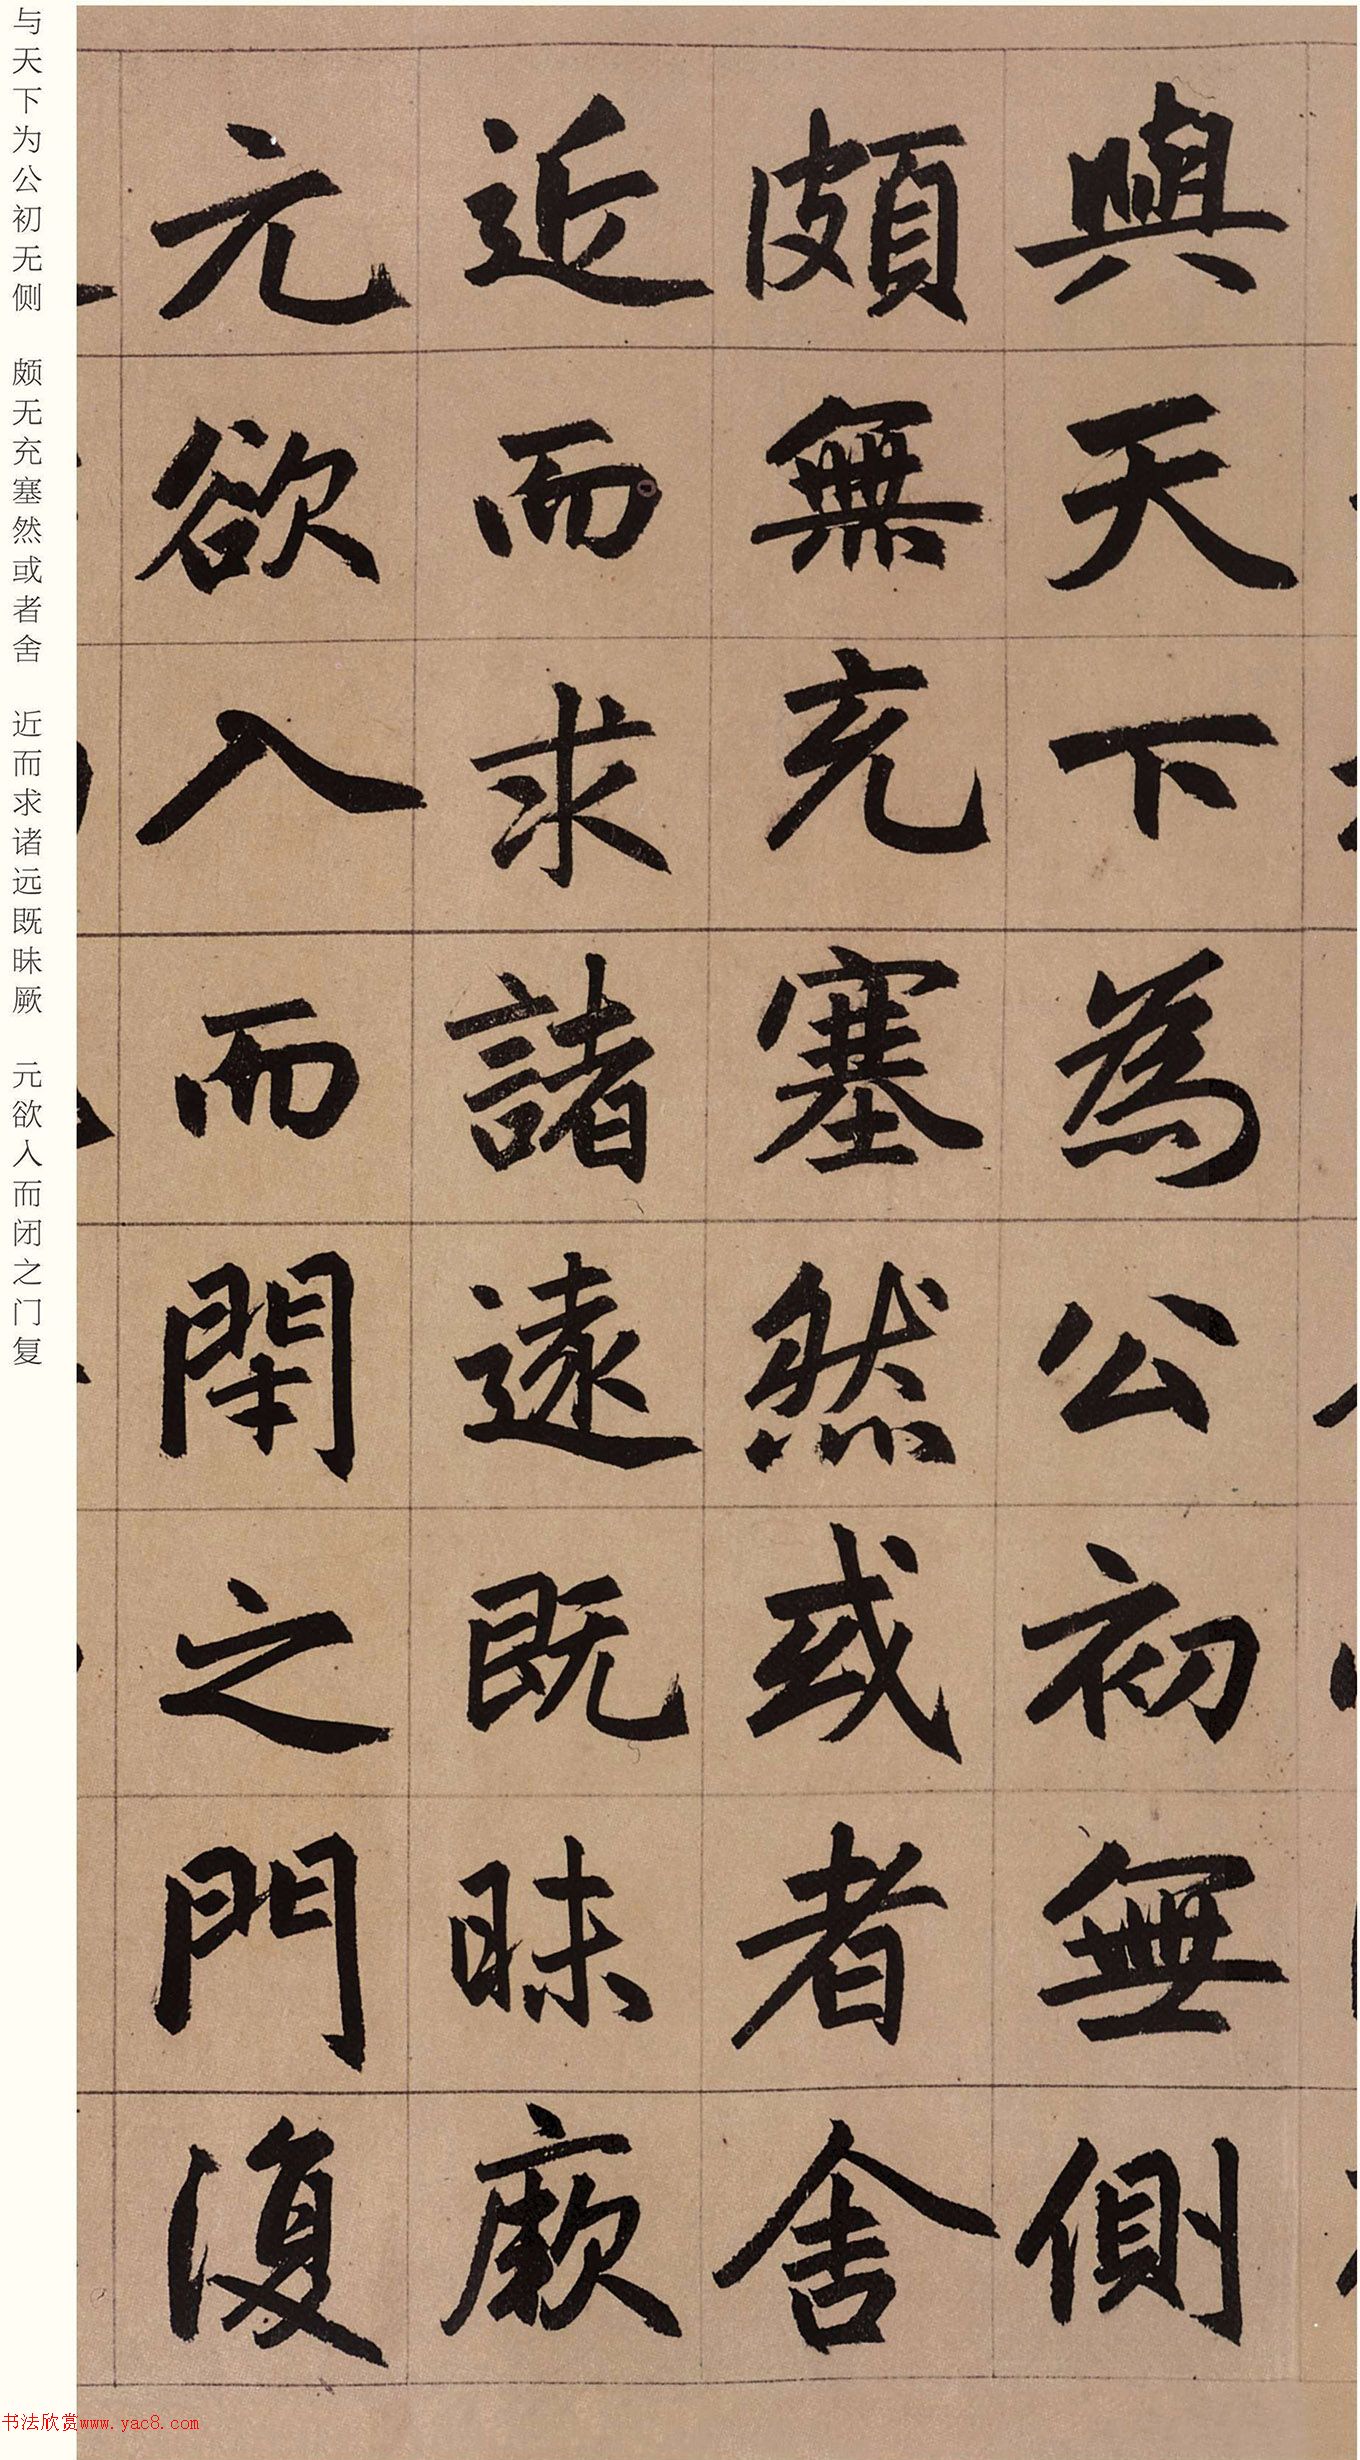 與天下為公初無側
頗無充塞然或者舍
近而求諸遠既昧厥
元欲入而閉之門復
与天下为公初无侧 颇无充塞然或者舍 近而求诸远既昧厥 元欲入而闭之门复
书法欣赏www.yac8.com